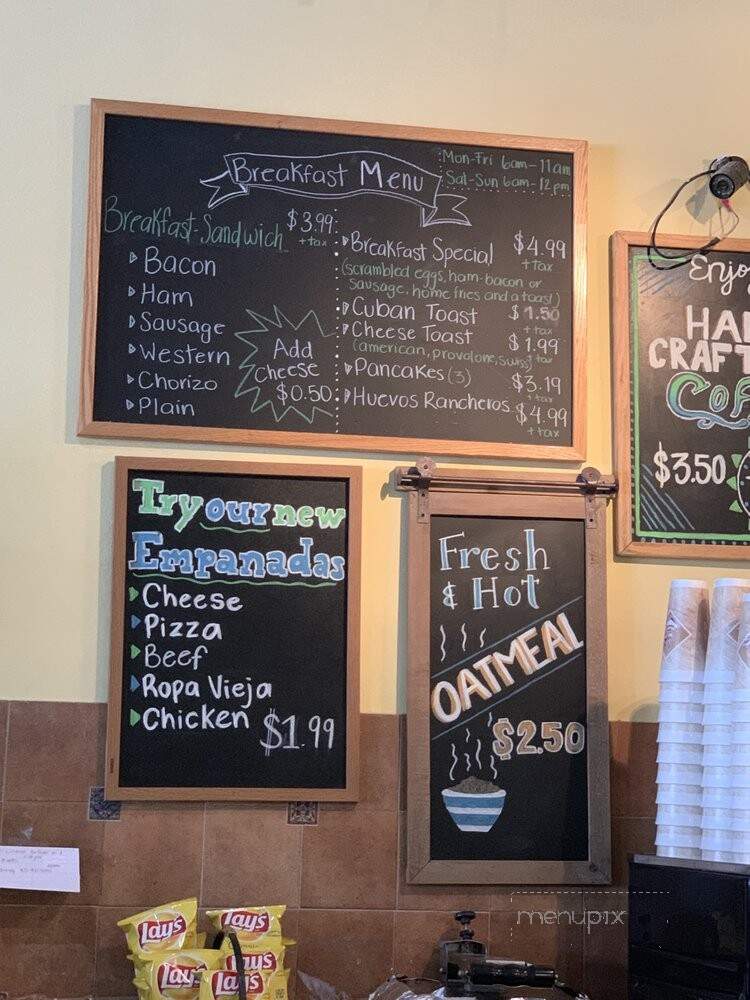 Breakfast Menu
Mon-Fri 6am-11am
Sat-Sun 6am-12pm
Breakfast-Sandwich $3.99
+tax
Bacon
Ham
Sausage
Western
Chorizo
Plain
Add
Cheese
$0.50
Breakfast Special $4.99
+tax
(scrambled eggs, ham-bacon or
sausage. home fries and a toast)
Cuban Toast $1.50
+tax
Cheese Toast $1.99
(american, provalone, swiss) +tax
Pancakes (3) $3.19
+tax
Huevos Rancheros $4.99
+tax
Enjoy
HAN
CRAFT
COF
$3.50
Try our new
Empanadas
Cheese
Pizza
Beef
Ropa Vieja
Chicken $1.99
Fresh
& Hot
OATMEAL
$2.50
Lay's
Lay's
Lay's
Lay's
Lay's
menupix